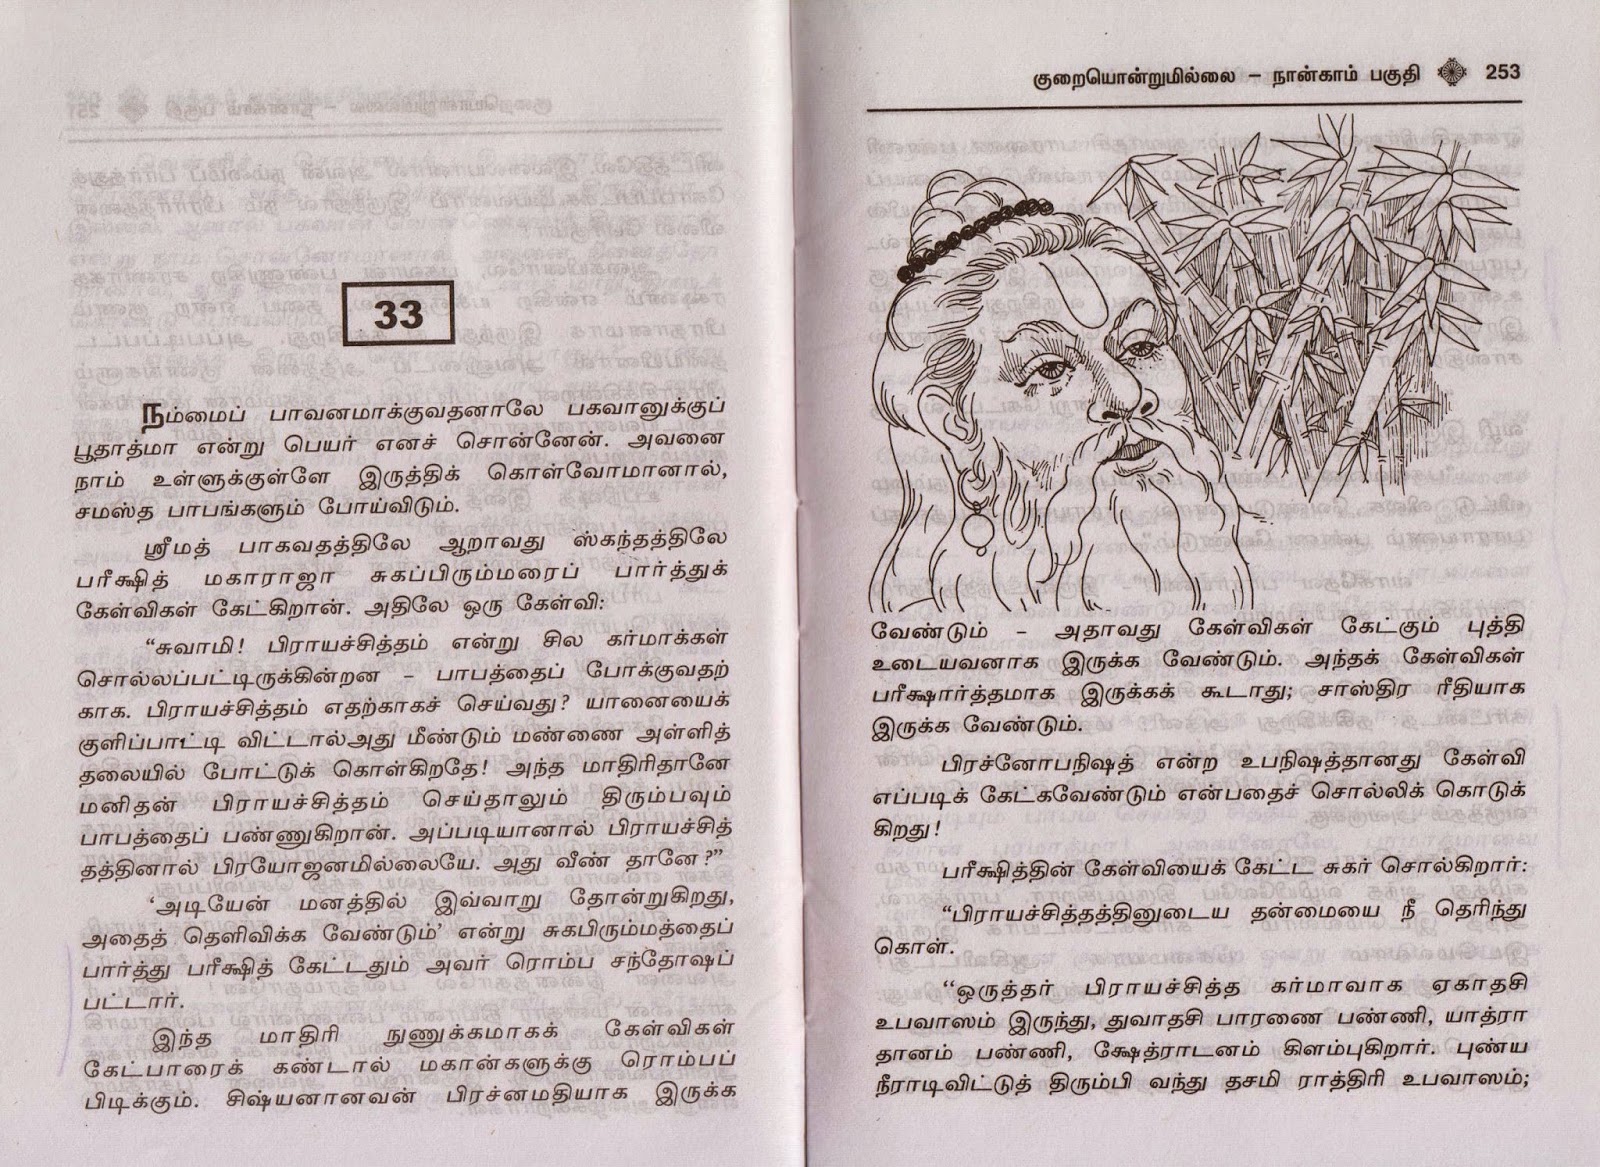 33
நம்மைப் பாவனமாக்குவதனாலே பகவானுக்குப்
பூதாத்மா என்று பெயர் எனச் சொன்னேன். அவனை
நாம் உள்ளுக்குள்ளே இருத்திக் கொள்வோமானால்,
சமஸ்த பாபங்களும் போய்விடும்.
ஸ்ரீமத் பாகவதத்திலே ஆறாவது ஸ்கந்தத்திலே
பரீக்ஷித் மகாராஜா சுகப்பிரும்மரைப் பார்த்துக்
கேள்விகள் கேட்கிறான். அதிலே ஒரு கேள்வி:
“சுவாமி! பிராயச்சித்தம் என்று சில கர்மாக்கள்
சொல்லப்பட்டிருக்கின்றன – பாபத்தைப் போக்குவதற்
காக. பிராயச்சித்தம் எதற்காகச் செய்வது? யானையைக்
குளிப்பாட்டி விட்டால்அது மீண்டும் மண்ணை அள்ளித்
தலையில் போட்டுக் கொள்கிறதே! அந்த மாதிரிதானே
மனிதன் பிராயச்சித்தம் செய்தாலும் திரும்பவும்
பாபத்தைப் பண்ணுகிறான். அப்படியானால் பிராயச்சித்
தத்தினால் பிரயோஜனமில்லையே. அது வீண் தானே?”
‘அடியேன் மனத்தில் இவ்வாறு தோன்றுகிறது,
அதைத் தெளிவிக்க வேண்டும்’ என்று சுகபிரும்மத்தைப்
பார்த்து பரீக்ஷித் கேட்டதும் அவர் ரொம்ப சந்தோஷப்
பட்டார்.
இந்த மாதிரி நுணுக்கமாகக் கேள்விகள்
கேட்பாரைக் கண்டால் மகான்களுக்கு ரொம்பப்
பிடிக்கும். சிஷ்யனானவன் பிரச்னமதியாக இருக்க
குறையொன்றுமில்லை – நான்காம் பகுதி 253
வேண்டும் – அதாவது கேள்விகள் கேட்கும் புத்தி
உடையவனாக இருக்க வேண்டும். அந்தக் கேள்விகள்
பரீக்ஷார்த்தமாக இருக்கக் கூடாது; சாஸ்திர ரீதியாக
இருக்க வேண்டும்.
பிரச்னோபநிஷத் என்ற உபநிஷத்தானது கேள்வி
எப்படிக் கேட்கவேண்டும் என்பதைச் சொல்லிக் கொடுக்
கிறது!
பரீக்ஷித்தின் கேள்வியைக் கேட்ட சுகர் சொல்கிறார்:
“பிராயச்சித்தத்தினுடைய தன்மையை நீ தெரிந்து
கொள்.
“ஒருத்தர் பிராயச்சித்த கர்மாவாக ஏகாதசி
உபவாஸம் இருந்து, துவாதசி பாரணை பண்ணி, யாத்ரா
தானம் பண்ணி, க்ஷேத்ராடனம் கிளம்புகிறார். புண்ய
நீராடிவிட்டுத் திரும்பி வந்து தசமி ராத்திரி உபவாஸம்;